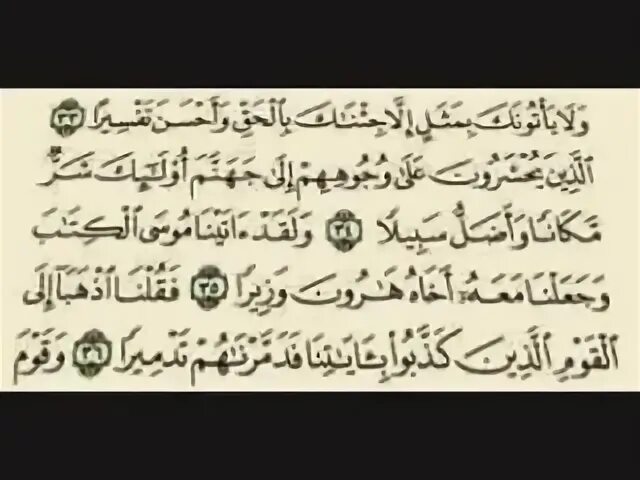 وَلَا يَأْتُونَكَ بِمَثَلٍ إِلَّا جِئْنَاكَ بِالْحَقِّ وَأَحْسَنَ تَفْسِيرًا ٣٣
الَّذِينَ يُحْشَرُونَ عَلَى وُجُوهِهِمْ إِلَى جَهَنَّمَ أُوْلَـٰئِكَ شَرٌّ
مَّكَانًا وَأَضَلُّ سَبِيلًا ٣٤ وَلَقَدْ ءَاتَيْنَا مُوسَى الْكِتَـٰبَ
وَجَعَلْنَا مَعَهُۥ أَخَاهُ هَـٰرُونَ وَزِيرًا ٣٥ فَقُلْنَا اذْهَبَا إِلَى
الْقَوْمِ الَّذِينَ كَذَّبُوا بِـَٔايَـٰتِنَا فَدَمَّرْنَـٰهُمْ تَدْمِيرًا ٣٦ وَقَوْمَ